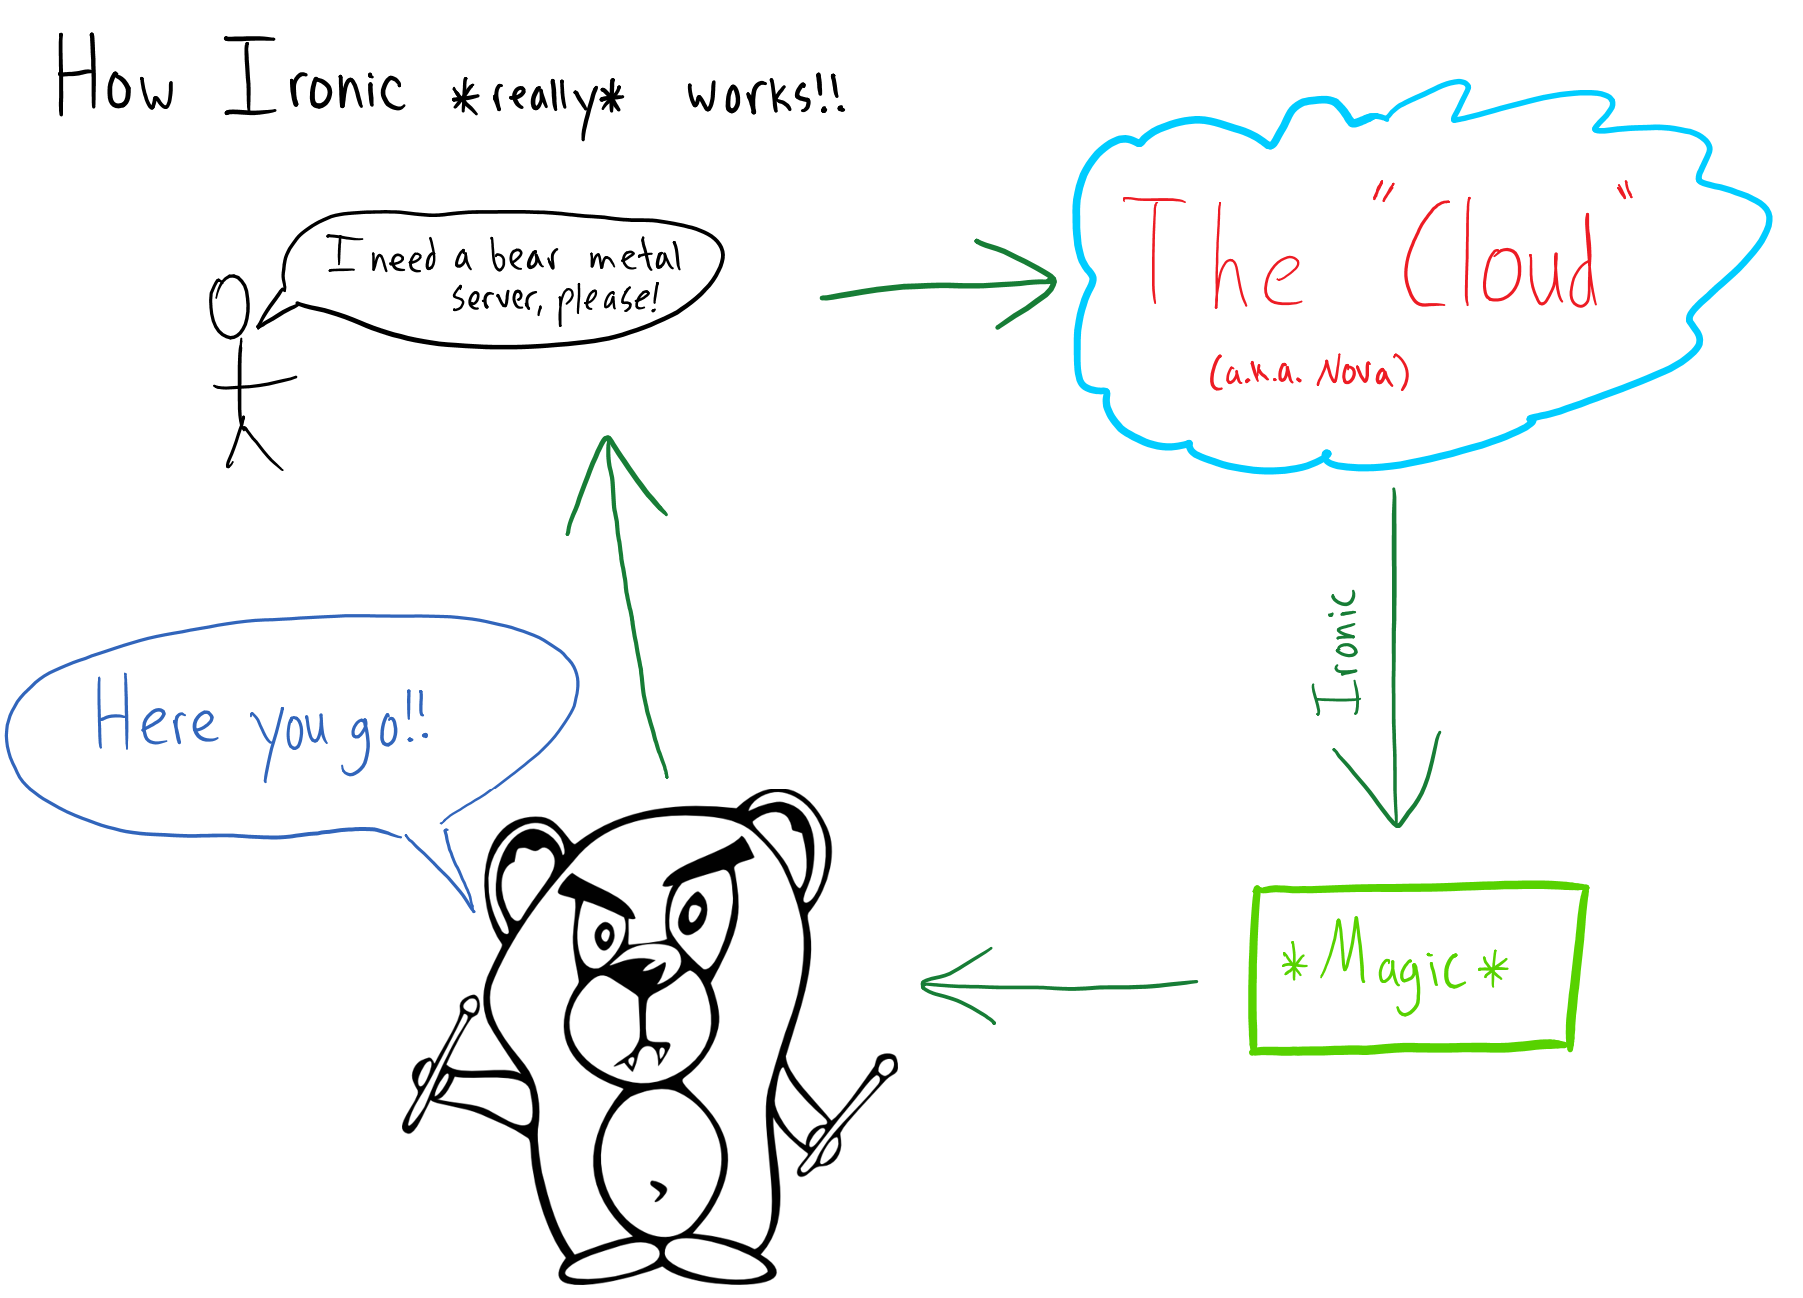 How Ironic *really* works!!
I need a bear metal
server, please!
The "Cloud"
(a.k.a. Nova)
Ironic
Here you go!!
*Magic*